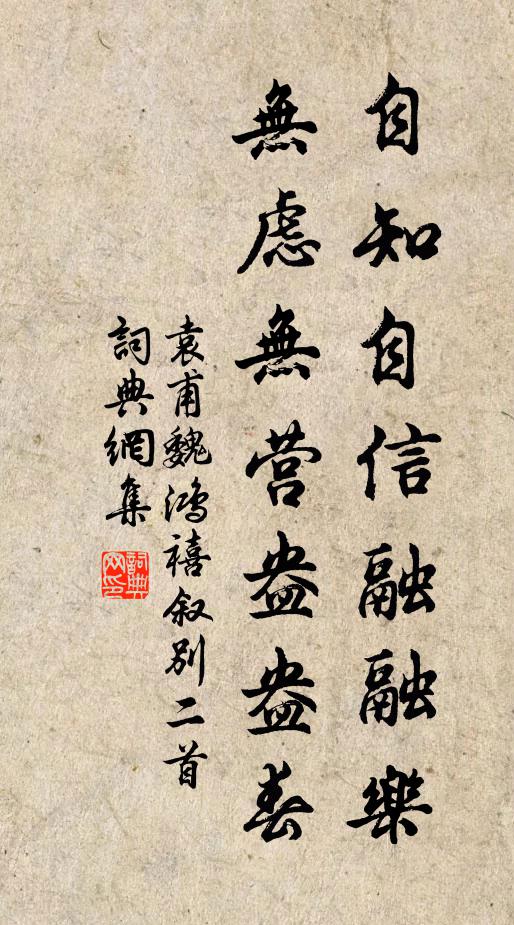 自知自信融融樂
無慮無营盎盎春
袁甫魏鴻禧叙别二首
詞典網集
詞典
网印